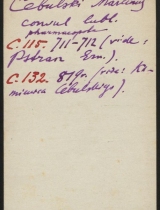 Cebulski Martinus
consul lubl.
pharmacopola
C. 115. 711-712 (vide:
Pstran Em.).
C. 132. 879v. (vide: Ka-
Cebulskiego).